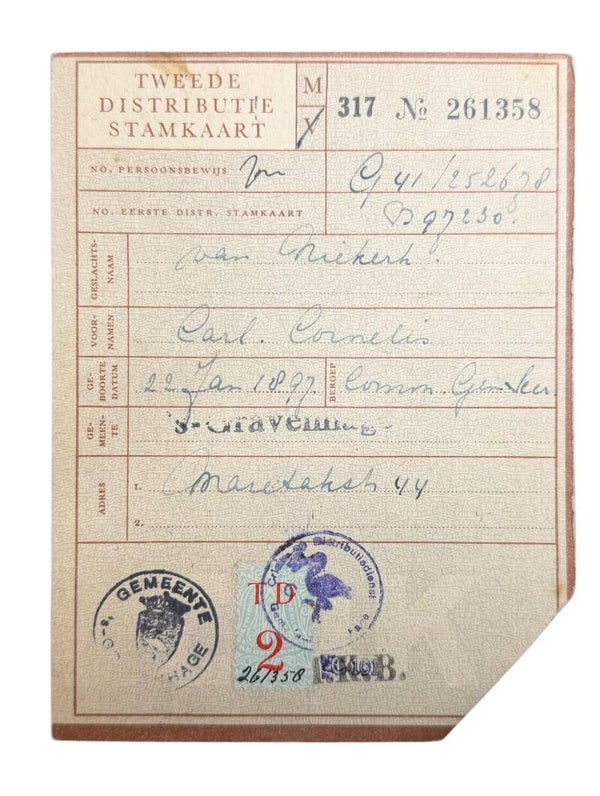 TWEEDE
DISTRIBUTIE
STAMKAART
M
V
317 № 261358
NO. PERSOONSBEWIJS
G 41/252678
NO. EERSTE DISTR. STAMKAART
97230.
GESLACHTS-
NAAM
van Niekerk.
VOOR-
NAMEN
Carl. Cornelis
GE-
BOORTE
DATUM
22 Jan 1897.
BEROEP
Comm. Gem
GE-
MEEN-
TE
's-Gravenhage
ADRES
1.
Maretakstr 44
2.
GEMEENTE
's-GRAVENHAGE
TD
2
261358
Distributiedienst